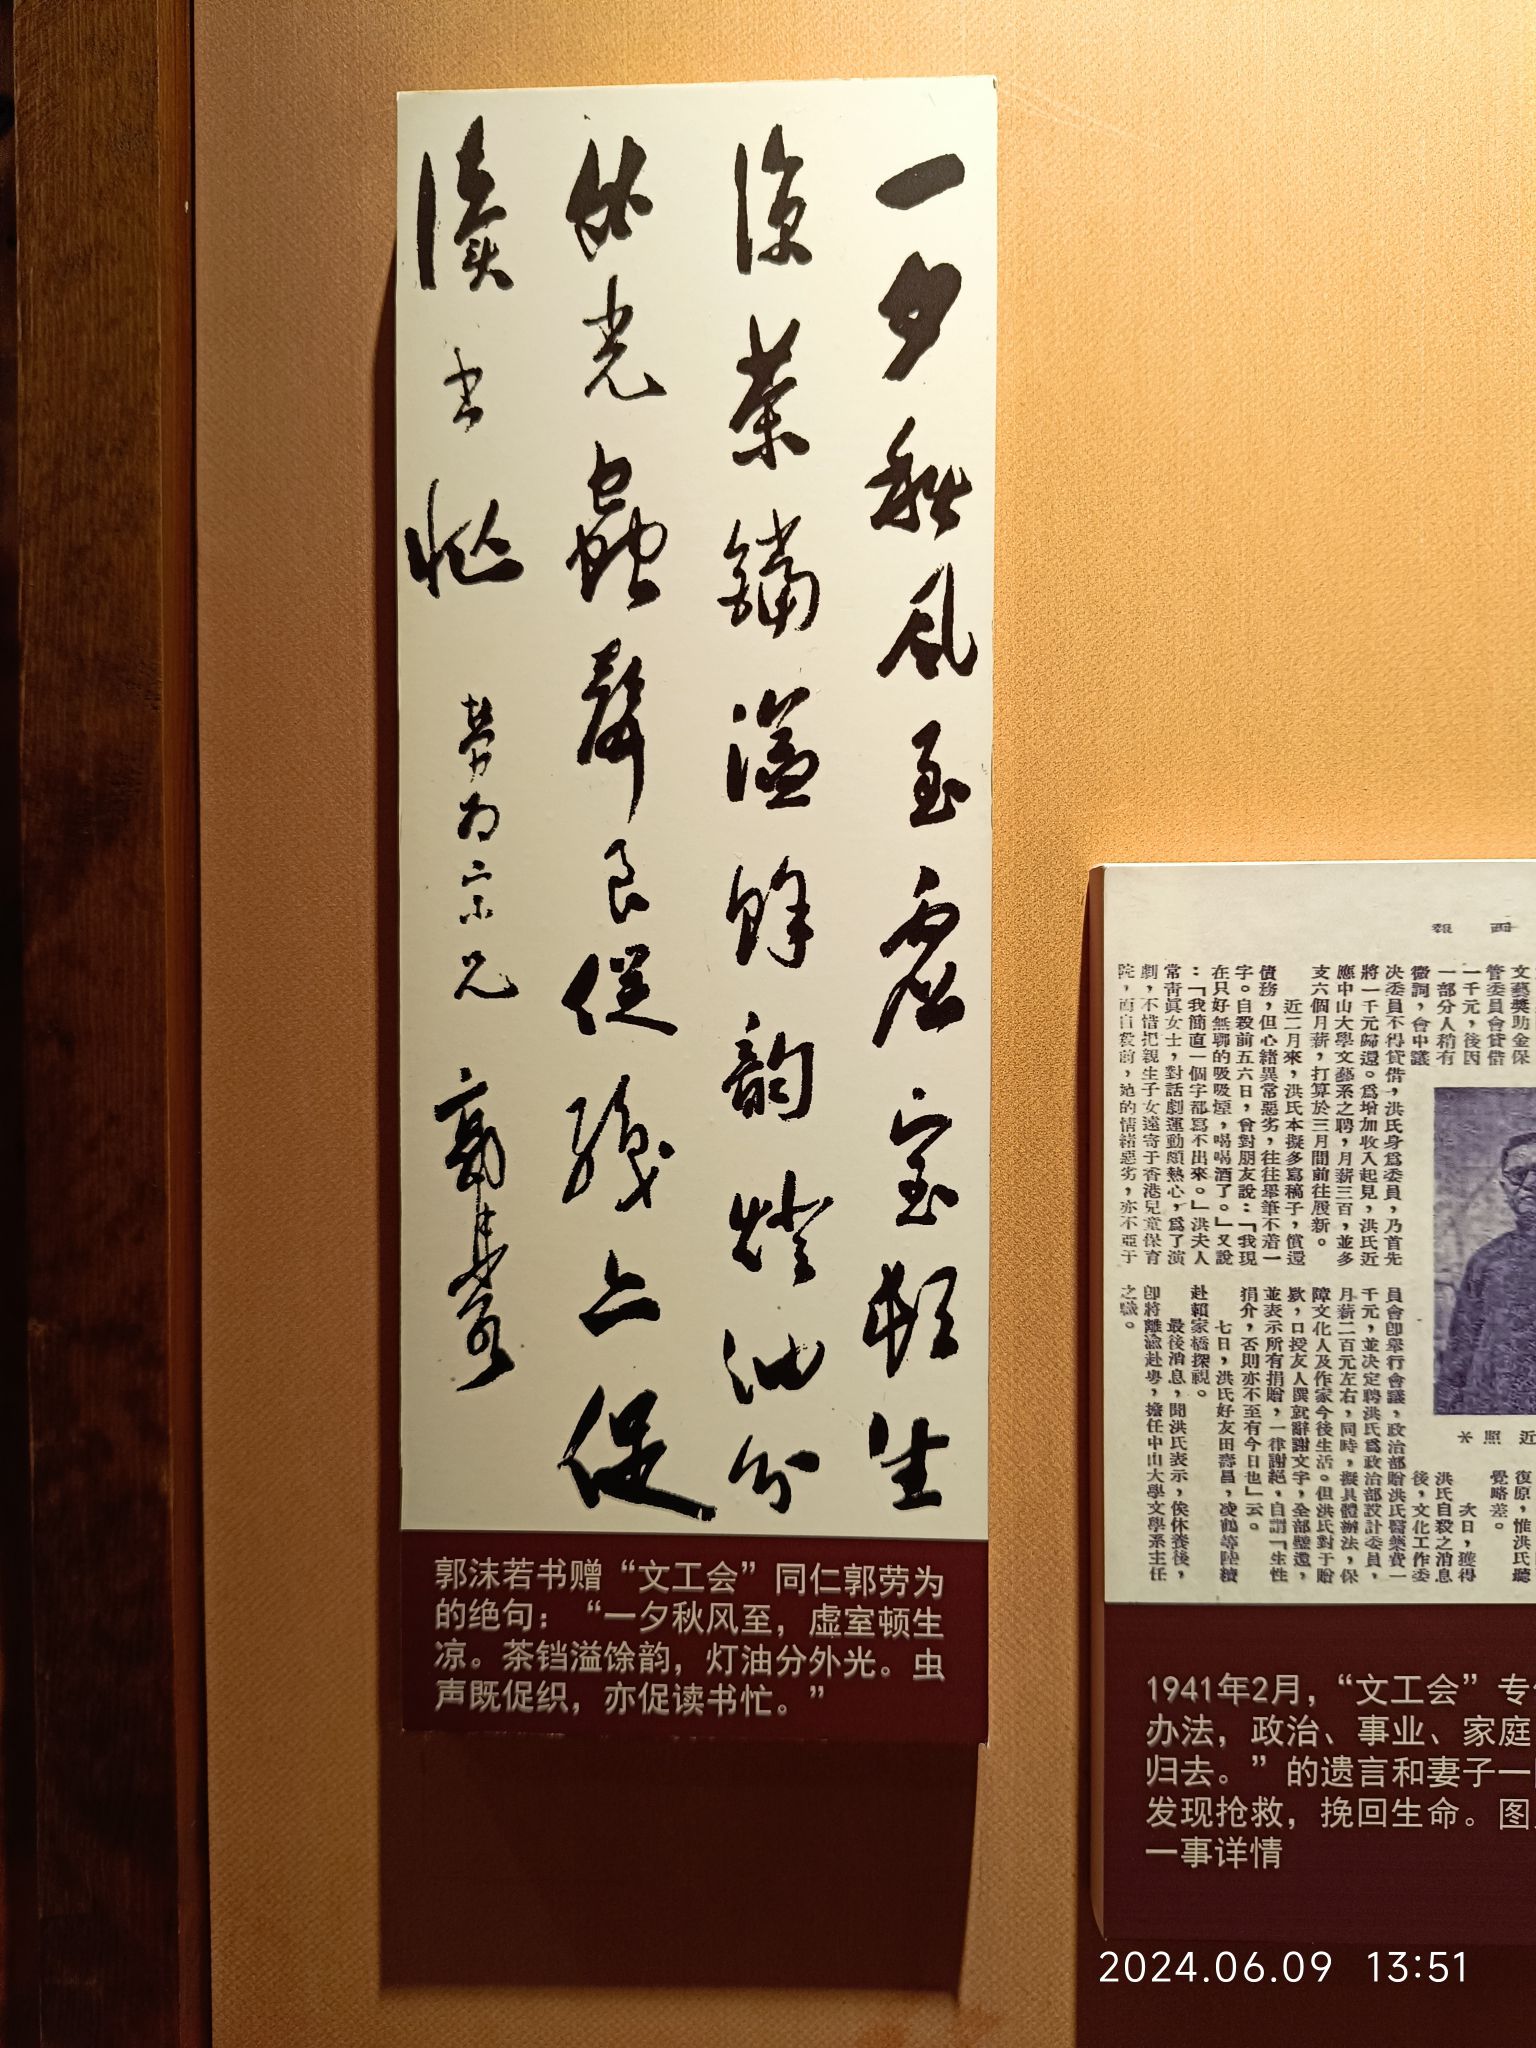 一夕秋风至虚室頓生
涼茶鐺溢餘韵燈油分
外光蟲聲既促織亦促
讀书忙
劳为宗兄
郭沫若
郭沫若书赠“文工会”同仁郭劳为
的绝句：“一夕秋风至，虚室顿生
凉。茶铛溢馀韵，灯油分外光。虫
声既促织，亦促读书忙。”
文藝獎助金保
管委員會貸借
一千元，後因
一部分人稍有
微詞，會中議
决委員不得貸借，洪氏身爲委員，乃首先
將一千元歸還。爲增加收入起見，洪氏近
應中山大學文藝系之聘，月薪三百，並多
支六個月薪，打算於三月間前往履新。
近二月來，洪氏本擬多寫稿子，償還
債務，但心緒異常惡劣，往往舉筆不着一
字。自殺前五六日，曾對朋友說：「我現
在只好無聊的吸吸煙，喝喝酒了。」又說
：「我簡直一個字都寫不出來。」洪夫人
常青眞女士，對話劇運動頗熱心，爲了演
劇，不惜把親生子女遠寄于香港兒童保育
院，而自殺前，她的情緒惡劣，亦不亞于
之職。
近照
復原，惟洪氏聽
覺略差。
次日，獲得
洪氏自殺之消息
後，文化工作委
員會卽舉行會議，政治部贈洪氏醫藥費一
千元，並决定聘洪氏爲政治部設計委員，
月薪二百元左右，同時，擬具體辦法，保
障文化人及作家今後生活。但洪氏對于贈
欵，口授友人撰就辭謝文字，全部璧還，
並表示所有捐贈，一律謝絕，自謂「生性
捐介，否則亦不至有今日也」云。
七日，洪氏好友田壽昌，凌鶴等陸續
赴賴家橋探視。
最後消息，聞洪氏表示，俟休養後，
卽將離渝赴粵，擔任中山大學文學系主任
1941年2月，“文工会”专
办法，政治、事业、家庭
归去。”的遗言和妻子一
发现抢救，挽回生命。图
一事详情
2024.06.09 13:51